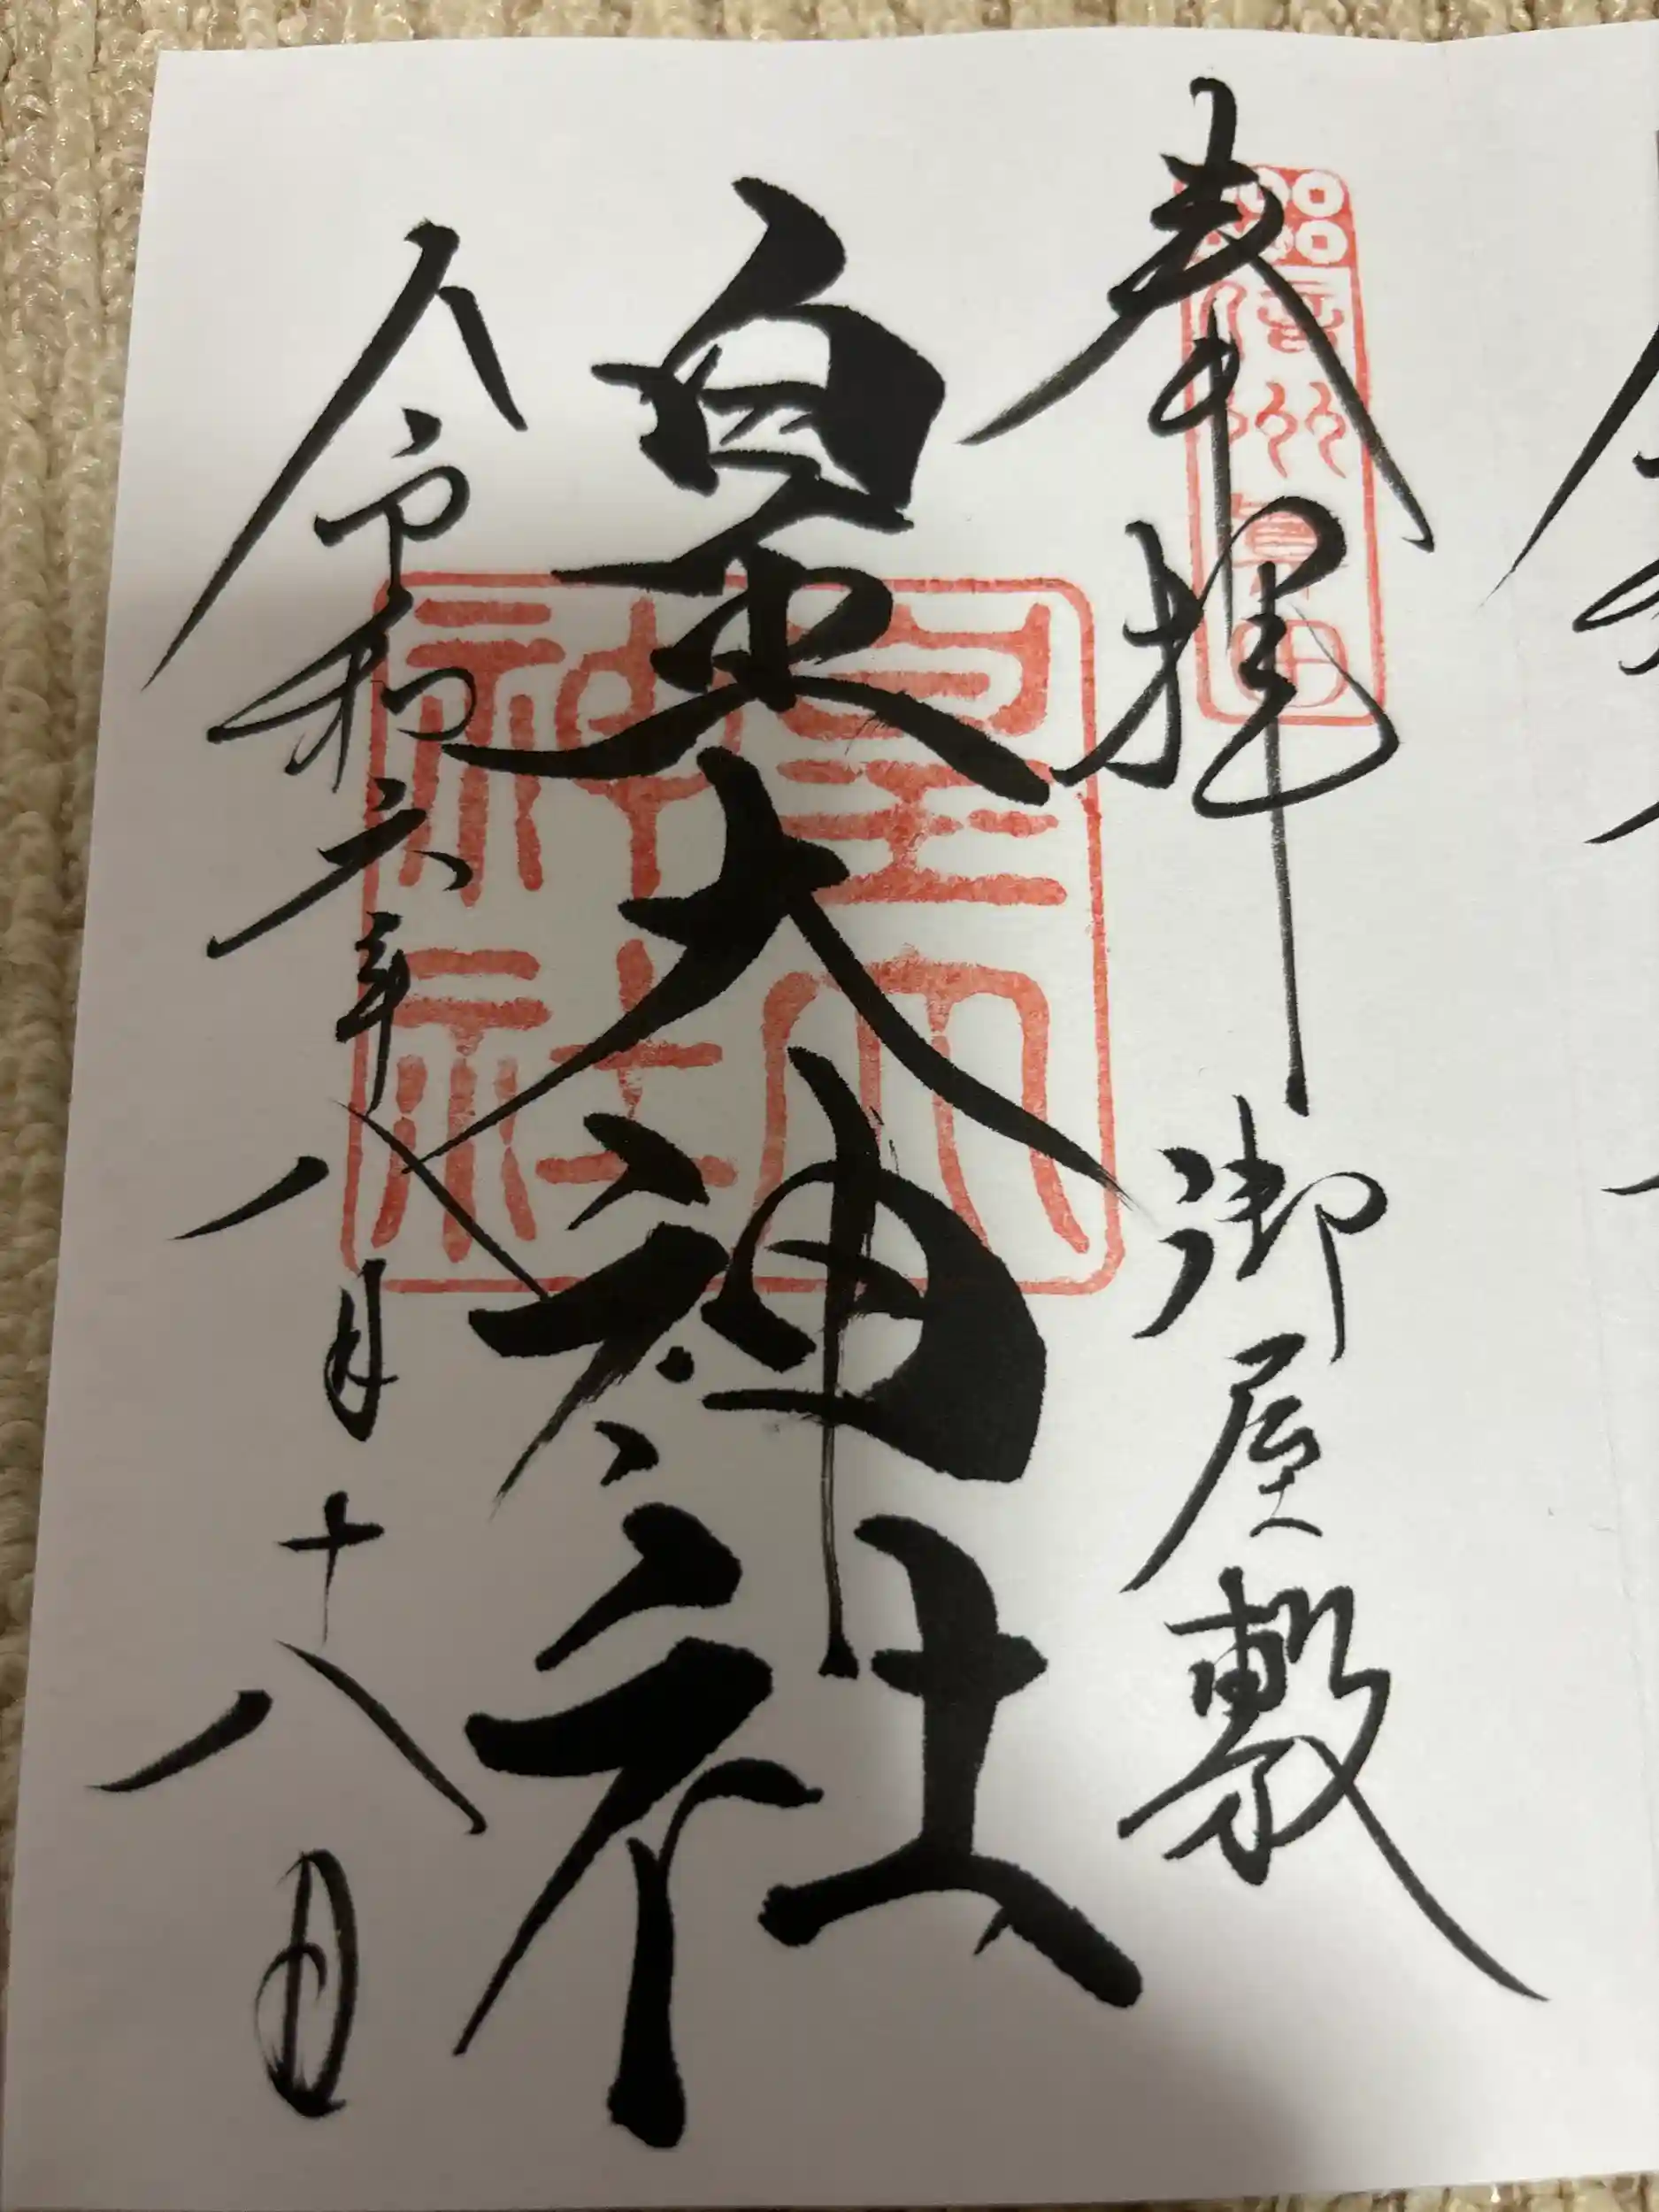 奉拝 御屋敷
信州眞田
皇大神社
皇大神社
令和六年八月十八日